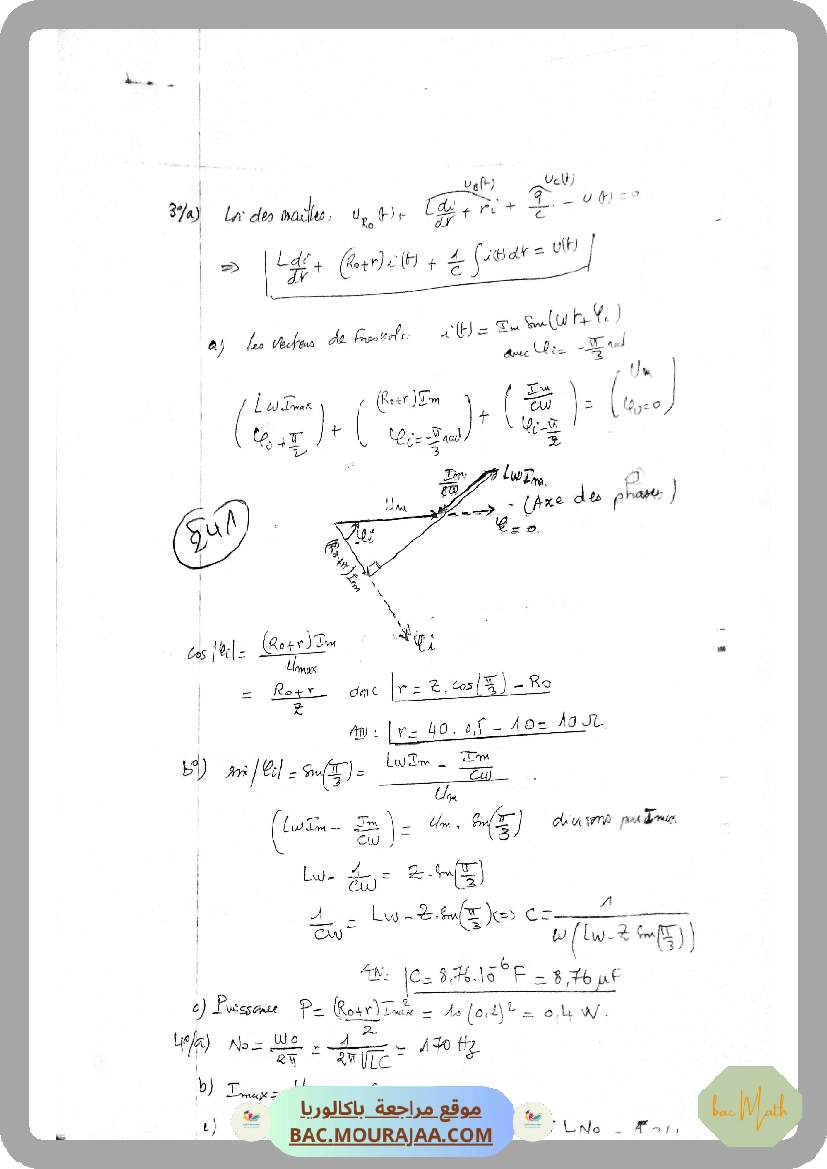 3°/a) Loi des mailles: U_R0(t) + L di/dt + ri + q/C - U(t) = 0
U_B(t) U_C(t)
⇒ L di/dt + (R0+r) i(t) + 1/C ∫ i(t) dt = U(t)
a) Les vecteurs de Fresnel: i(t) = Im Sin(Wt + φi)
avec φi = -π/3 rad
(LwImax ; φi + π/2) + ((R0+r)Im ; φi = -π/3 rad) + (Im/CW ; φi - π/2) = (Um ; φu = 0)
Im/CW LWIm
Um (Axe des phases)
φ = 0
φi
(R0+r)Im
φi
cos|φi| = (R0+r)Im / Umax
= R0+r / Z donc r = Z. cos(π/3) - R0
AN: r = 40. 0,5 - 10 = 10 Ω
b°) sin|φi| = Sin(π/3) = (LwIm - Im/CW) / Um
(LwIm - Im/CW) = Um. Sin(π/3) divisons par Imax
Lw - 1/CW = Z. Sin(π/3)
1/CW = Lw - Z. Sin(π/3) (=) C = 1 / W(Lw - Z Sin(π/3))
AN: C = 8,76.10^-6 F = 8,76 µF
c) Puissance P = (R0+r) Imax² / 2 = 10 (0,2)² = 0,4 W.
4°/a) N0 = W0/2π = 1/2π√LC = 170 Hz
b) Imax =
c) LN0 -
موقع مراجعة باكالوريا
BAC.MOURAJAA.COM
bac Math